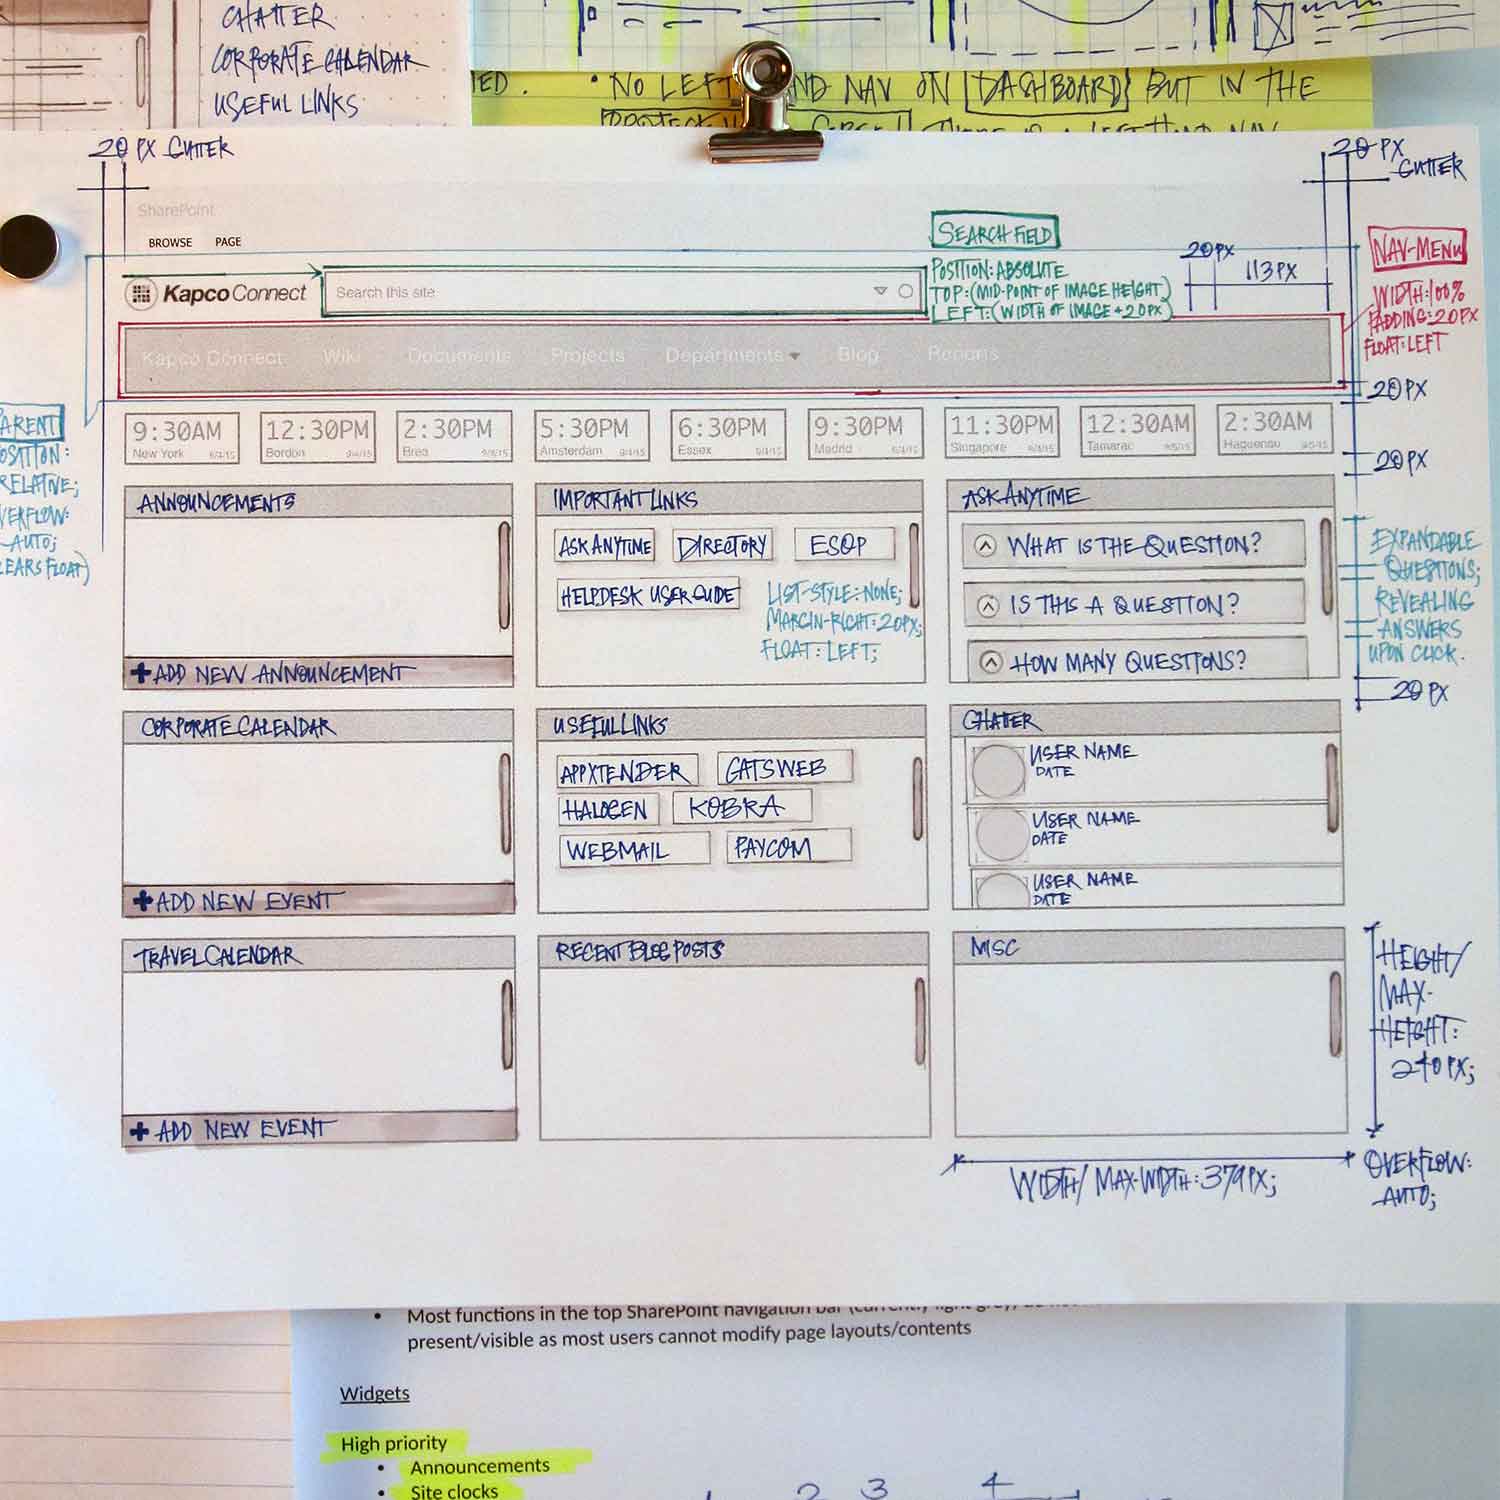 CHATTER
CORPORATE CALENDAR
USEFUL LINKS
• NO LEFT ND NAV ON [DASHBOARD] BUT IN THE
20 PX GUTTER
20 PX
GUTTER
SharePoint
BROWSE PAGE
SEARCH FIELD
POSITION: ABSOLUTE
TOP: (MID-POINT OF IMAGE HEIGHT)
LEFT: (WIDTH OF IMAGE + 20PX)
20PX
113PX
NAV-MENU
WIDTH: 100%
PADDING: 20PX
FLOAT: LEFT
Kapco Connect
Search this site
Kapco Connect Wiki Documents Projects Departments Blog Reports
20PX
9:30AM 12:30PM 2:30PM 5:30PM 6:30PM 9:30PM 11:30PM 12:30AM 2:30AM
New York 9/4/15 Bordon 9/4/15 Brea 9/4/15 Amsterdam 9/4/15 Essex 9/4/15 Madrid 9/4/15 Singapore 9/4/15 Tamarac 9/5/15 Haguenau 9/5/15
20PX
ARENT
OSITION:
RELATIVE;
VERFLOW:
AUTO;
EARS FLOAT)
ANNOUNCEMENTS
+ADD NEW ANNOUNCEMENT
IMPORTANT LINKS
ASK ANYTIME DIRECTORY ESOP
HELPDESK USER GUIDE
LIST-STYLE: NONE;
MARGIN-RIGHT: 20PX;
FLOAT: LEFT;
ASK ANYTIME
WHAT IS THE QUESTION?
IS THIS A QUESTION?
HOW MANY QUESTIONS?
EXPANDABLE
QUESTIONS;
REVEALING
ANSWERS
UPON CLICK.
20 PX
CORPORATE CALENDAR
+ADD NEW EVENT
USEFUL LINKS
APPXTENDER GATSWEB
HALOGEN KOBRA
WEBMAIL PAYCOM
CHATTER
USER NAME
DATE
USER NAME
DATE
USER NAME
DATE
TRAVEL CALENDAR
+ ADD NEW EVENT
RECENT BLOG POSTS
MISC
HEIGHT/
MAX-
HEIGHT:
240PX;
WIDTH/ MAX-WIDTH: 379PX;
OVERFLOW:
AUTO;
• Most functions in the top SharePoint navigation bar (currently light grey)
present/visible as most users cannot modify page layouts/contents
Widgets
High priority
• Announcements
• Site clocks
2 3 4